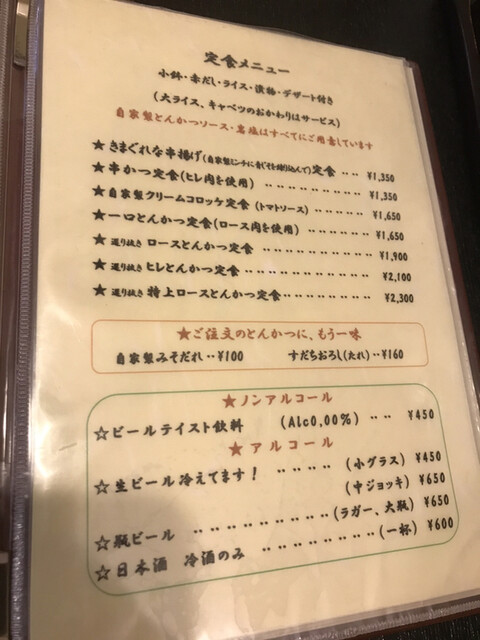 定食メニュー
小鉢・赤だし・ライス・漬物・デザート付き
(大ライス、キャベツのおかわりはサービス)
自家製とんかつソース・岩塩はすべてにご用意しています
★きまぐれな串揚げ(自家製ミンチに青じそを練り込んで)定食 ‥ ‥ ¥1,350
★串かつ定食(ヒレ肉を使用) ‥‥‥‥‥‥‥‥ ¥1,350
★自家製クリームコロッケ定食(トマトソース) ‥‥‥‥‥ ¥1,650
★一口とんかつ定食(ロース肉を使用) ‥‥‥‥‥ ¥1,650
★選り抜き ロースとんかつ定食 ‥‥‥‥‥‥‥‥ ¥1,900
★選り抜き ヒレとんかつ定食‥‥‥‥‥‥‥‥‥ ¥2,100
★選り抜き 特上ロースとんかつ定食‥‥‥‥‥‥ ¥2,300
★ご注文のとんかつに、もう一味
自家製みそだれ‥¥100 すだちおろし(たれ)‥¥160
★ノンアルコール
☆ビールテイスト飲料 (Alc0,00%) ‥ ‥ ¥450
★アルコール
☆生ビール冷えてます! ‥‥‥‥ (小グラス) ¥450
(中ジョッキ) ¥650
☆瓶ビール ‥‥‥‥‥‥‥‥‥(ラガー、大瓶) ¥650
☆日本酒 冷酒のみ ‥‥‥‥‥‥‥‥(一杯) ¥600